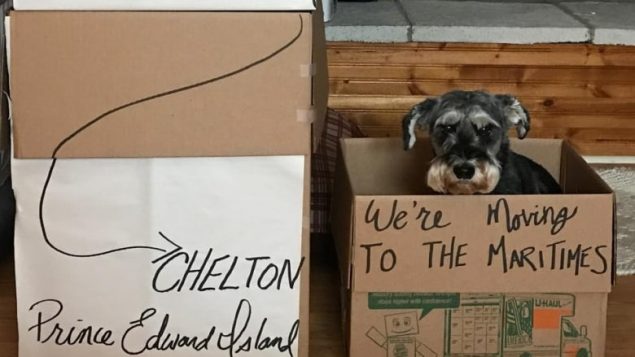 CHELTON
Prince Edward Island
We're Moving
TO THE MARITIMES
U-HAUL